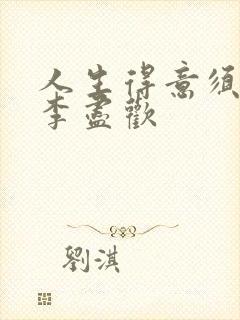 人生得意須
李盡歡
劉淇